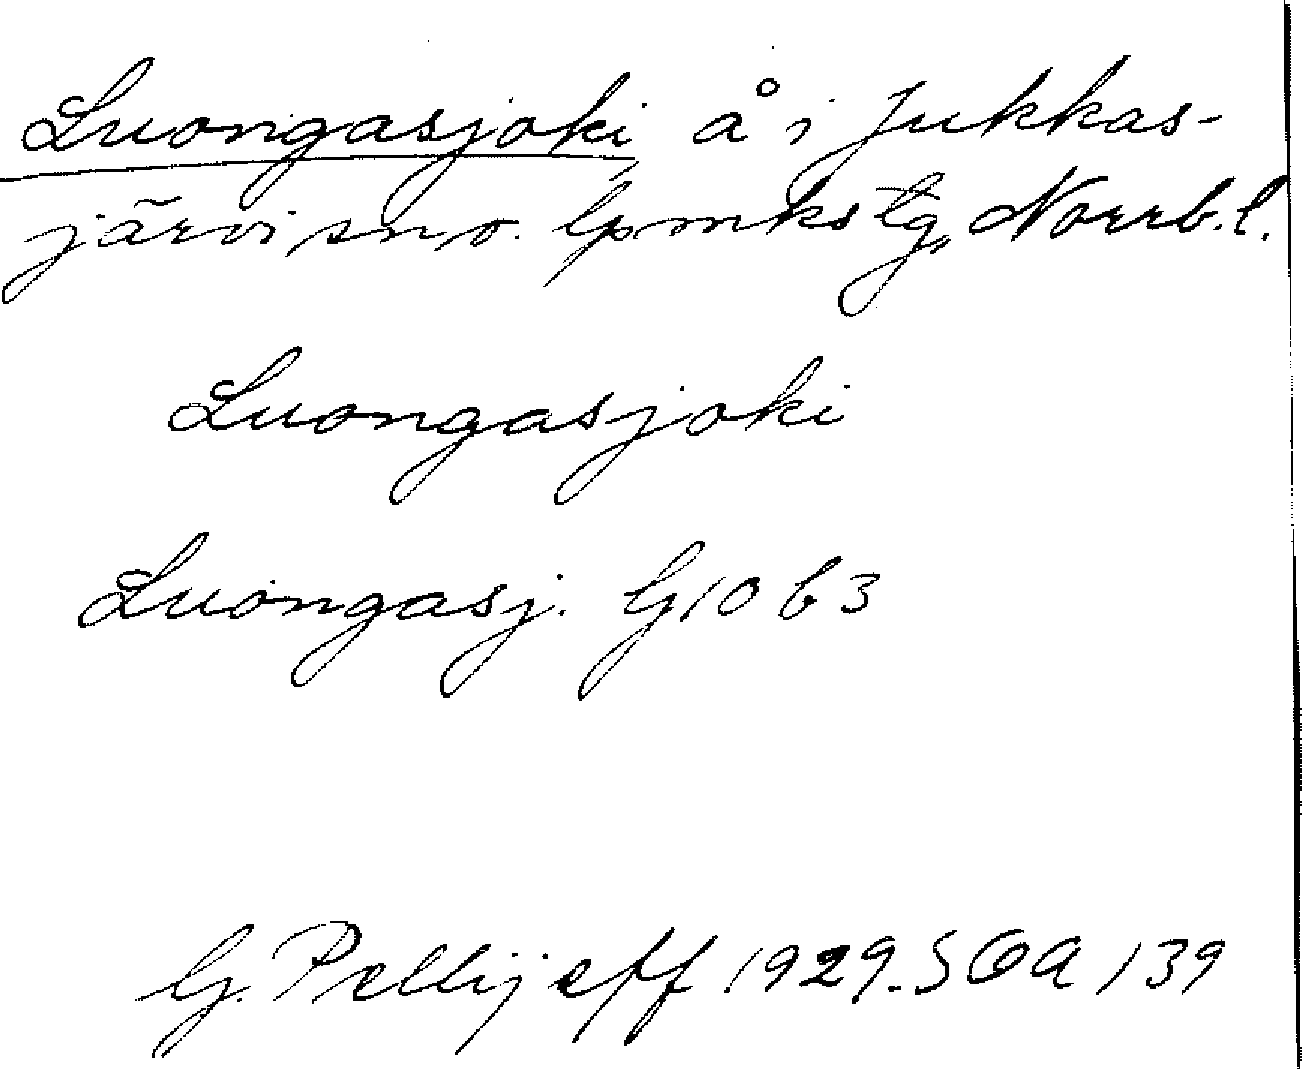 Luongasjoki å i Jukkas-
järvi sn o. lpmkstg, Norrb. l.
Luongasjoki
Luongasj. G10 b3
G. Pellijeff 1929. SOA 139